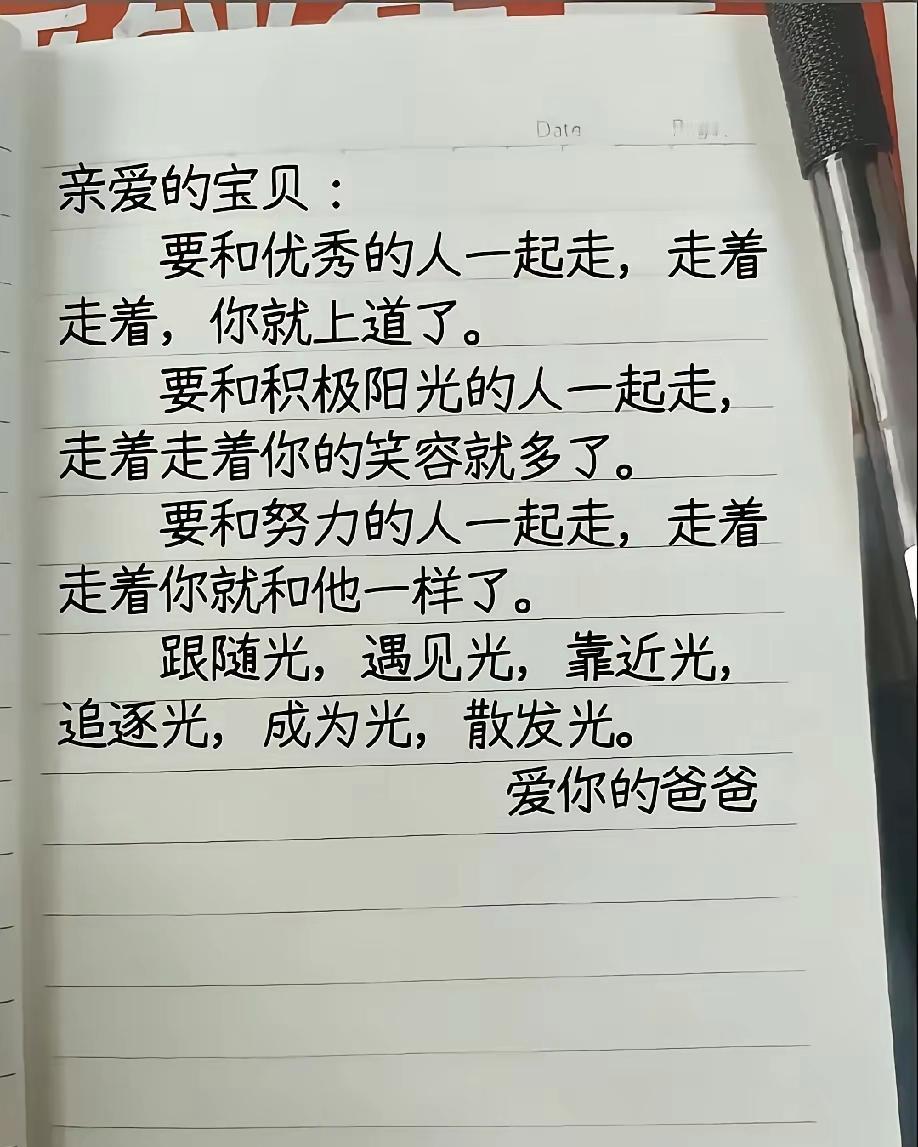 Date
亲爱的宝贝：
要和优秀的人一起走，走着
走着，你就上道了。
要和积极阳光的人一起走，
走着走着你的笑容就多了。
要和努力的人一起走，走着
走着你就和他一样了。
跟随光，遇见光，靠近光，
追逐光，成为光，散发光。
爱你的爸爸